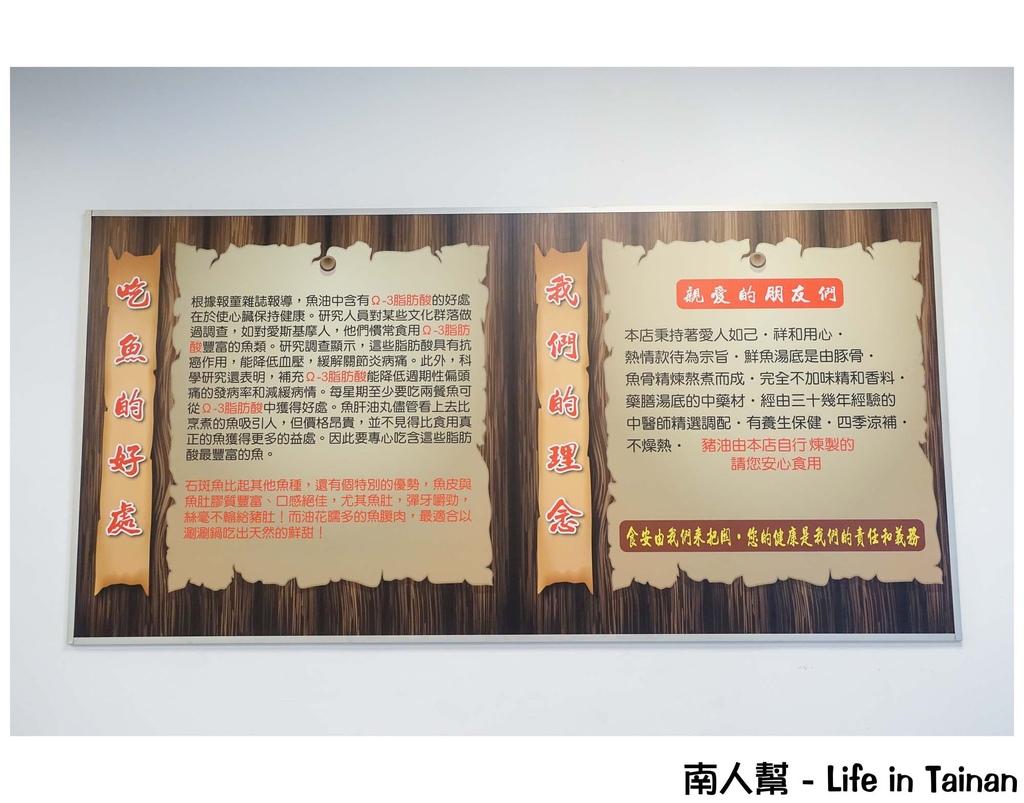 吃魚的好處
根據報童雜誌報導，魚油中含有Ω-3脂肪酸的好處
在於使心臟保持健康。研究人員對某些文化群落做
過調查，如對愛斯基摩人，他們慣常食用Ω-3脂肪
酸豐富的魚類。研究調查顯示，這些脂肪酸具有抗
癌作用，能降低血壓，緩解關節炎病痛。此外，科
學研究還表明，補充Ω-3脂肪酸能降低週期性偏頭
痛的發病率和減緩病情。每星期至少要吃兩餐魚可
從Ω-3脂肪酸中獲得好處。魚肝油丸儘管看上去比
烹煮的魚吸引人，但價格昂貴，並不見得比食用真
正的魚獲得更多的益處。因此要專心吃含這些脂肪
酸最豐富的魚。
石斑魚比起其他魚種，還有個特別的優勢，魚皮與
魚肚膠質豐富、口感絕佳，尤其魚肚，彈牙嚼勁，
絲毫不輸給豬肚！而油花曘多的魚腹肉，最適合以
涮涮鍋吃出天然的鮮甜！
我們的理念
親愛的朋友們
本店秉持著愛人如己・祥和用心・
熱情款待為宗旨・鮮魚湯底是由豚骨・
魚骨精煉熬煮而成・完全不加味精和香料・
藥膳湯底的中藥材・經由三十幾年經驗的
中醫師精選調配・有養生保健・四季涼補・
不燥熱・ 豬油由本店自行煉製的
請您安心食用
食安由我們來把關，您的健康是我們的責任和義務
南人幫 - Life in Tainan